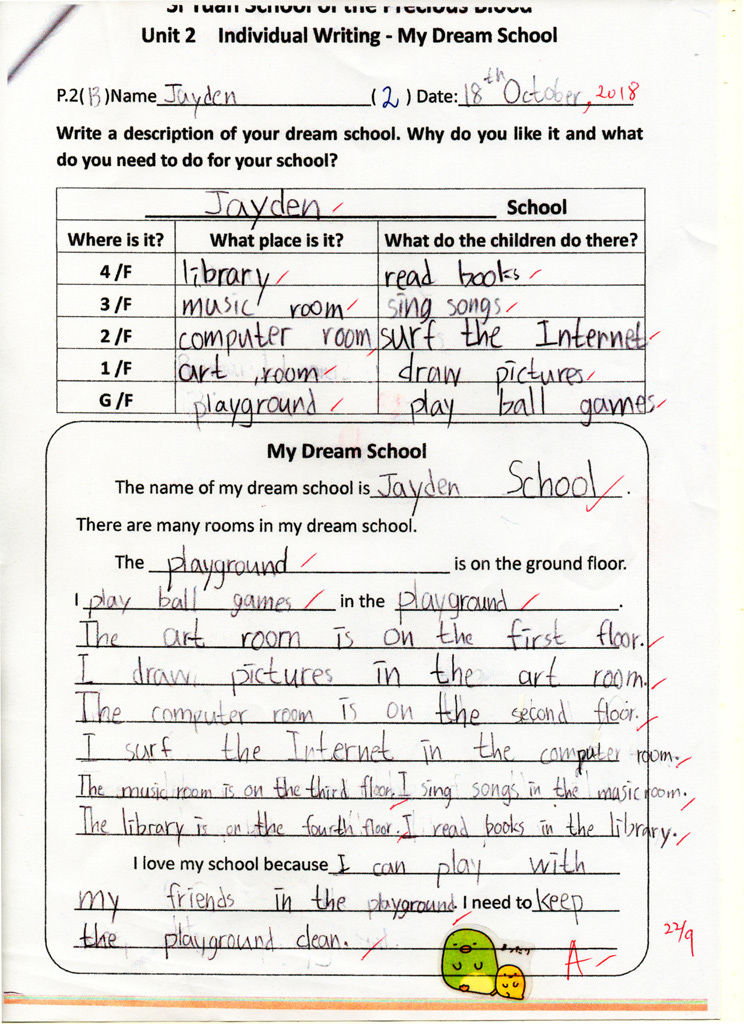 Si Yuan School of the Precious Blood
Unit 2 Individual Writing - My Dream School
P.2(B)Name Jayden (2) Date: 18th October, 2018
Write a description of your dream school. Why do you like it and what
do you need to do for your school?
Jayden School
Where is it? What place is it? What do the children do there?
4 /F library read books
3 /F music room sing songs
2 /F computer room surf the Internet
1 /F art room draw pictures
G /F playground play ball games
My Dream School
The name of my dream school is Jayden School.
There are many rooms in my dream school.
The playground is on the ground floor.
I play ball games in the playground.
The art room is on the first floor.
I draw pictures in the art room.
The computer room is on the second floor.
I surf the Internet in the computer room.
The music room is on the third floor. I sing songs in the music room.
The library is on the fourth floor. I read books in the library.
I love my school because I can play with
my friends in the playground. I need to keep
the playground clean.
22/9
A-